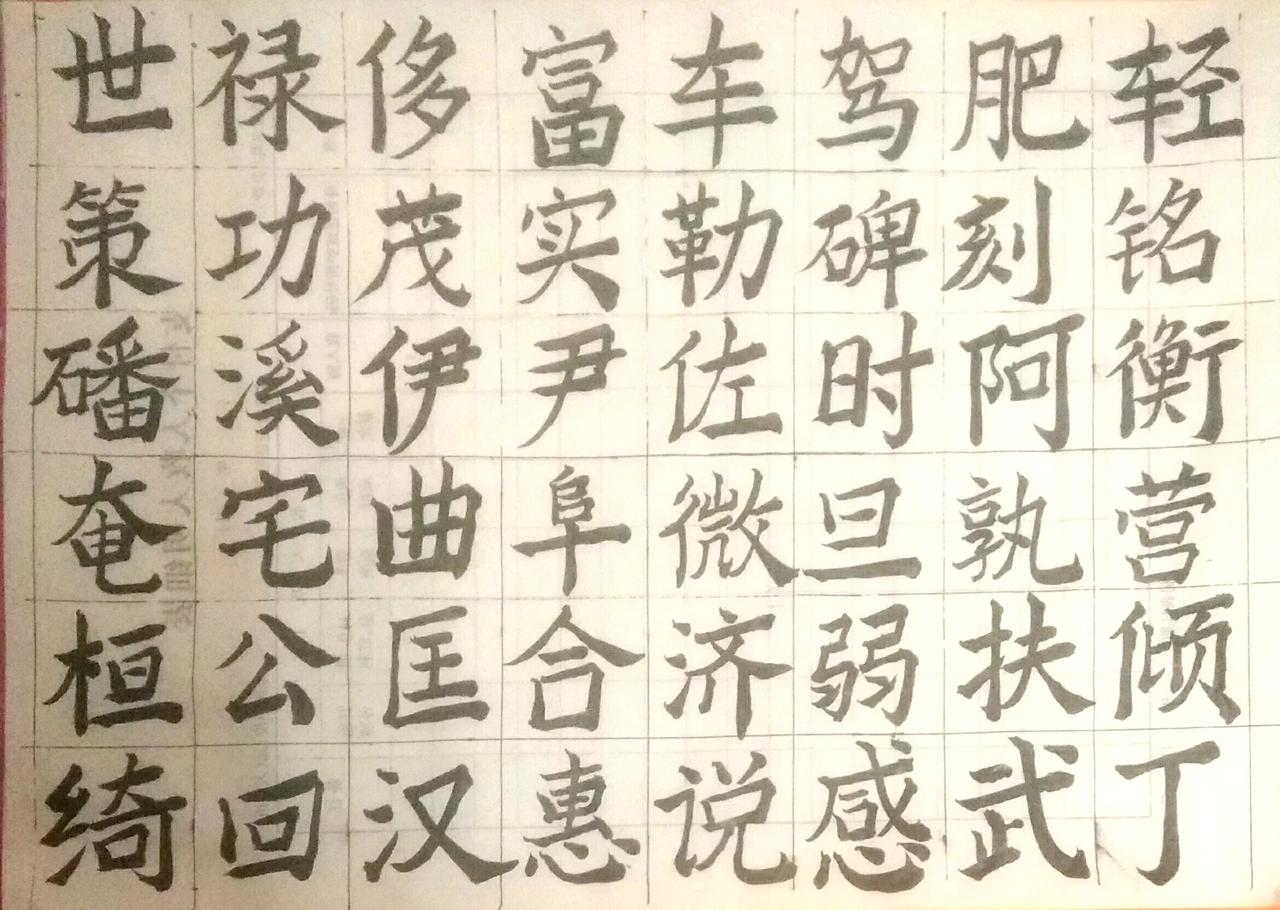 世禄侈富车驾肥轻
策功茂实勒碑刻铭
磻溪伊尹佐时阿衡
奄宅曲阜微旦孰营
桓公匡合济弱扶倾
绮回汉惠说感武丁